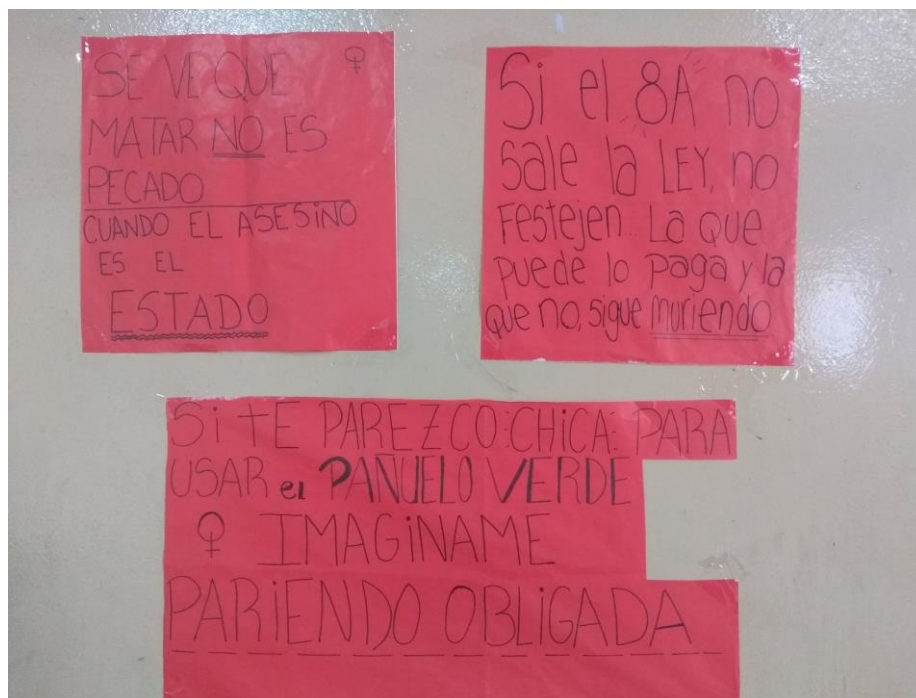 SE VE QUE ♀
MATAR NO ES
PECADO
CUANDO EL ASESINO
ES EL
ESTADO
Si el 8A no
sale la LEY, no
FESTEJEN... La que
puede lo paga y la
que no, sigue muriendo
Si TE PAREZCO:CHiCA: PARA
USAR el PAÑUELO VERDE
♀ IMAGiNAME
PARiENDO OBLiGADA